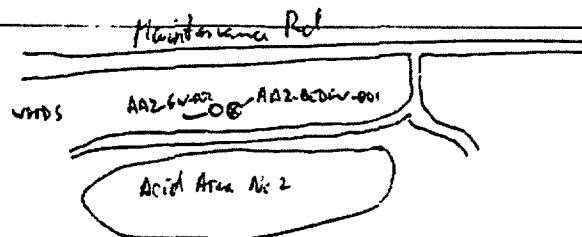 Maintenance Rd
AA2-GW-002 AA2-BEDGW-001
Acid Area No 2